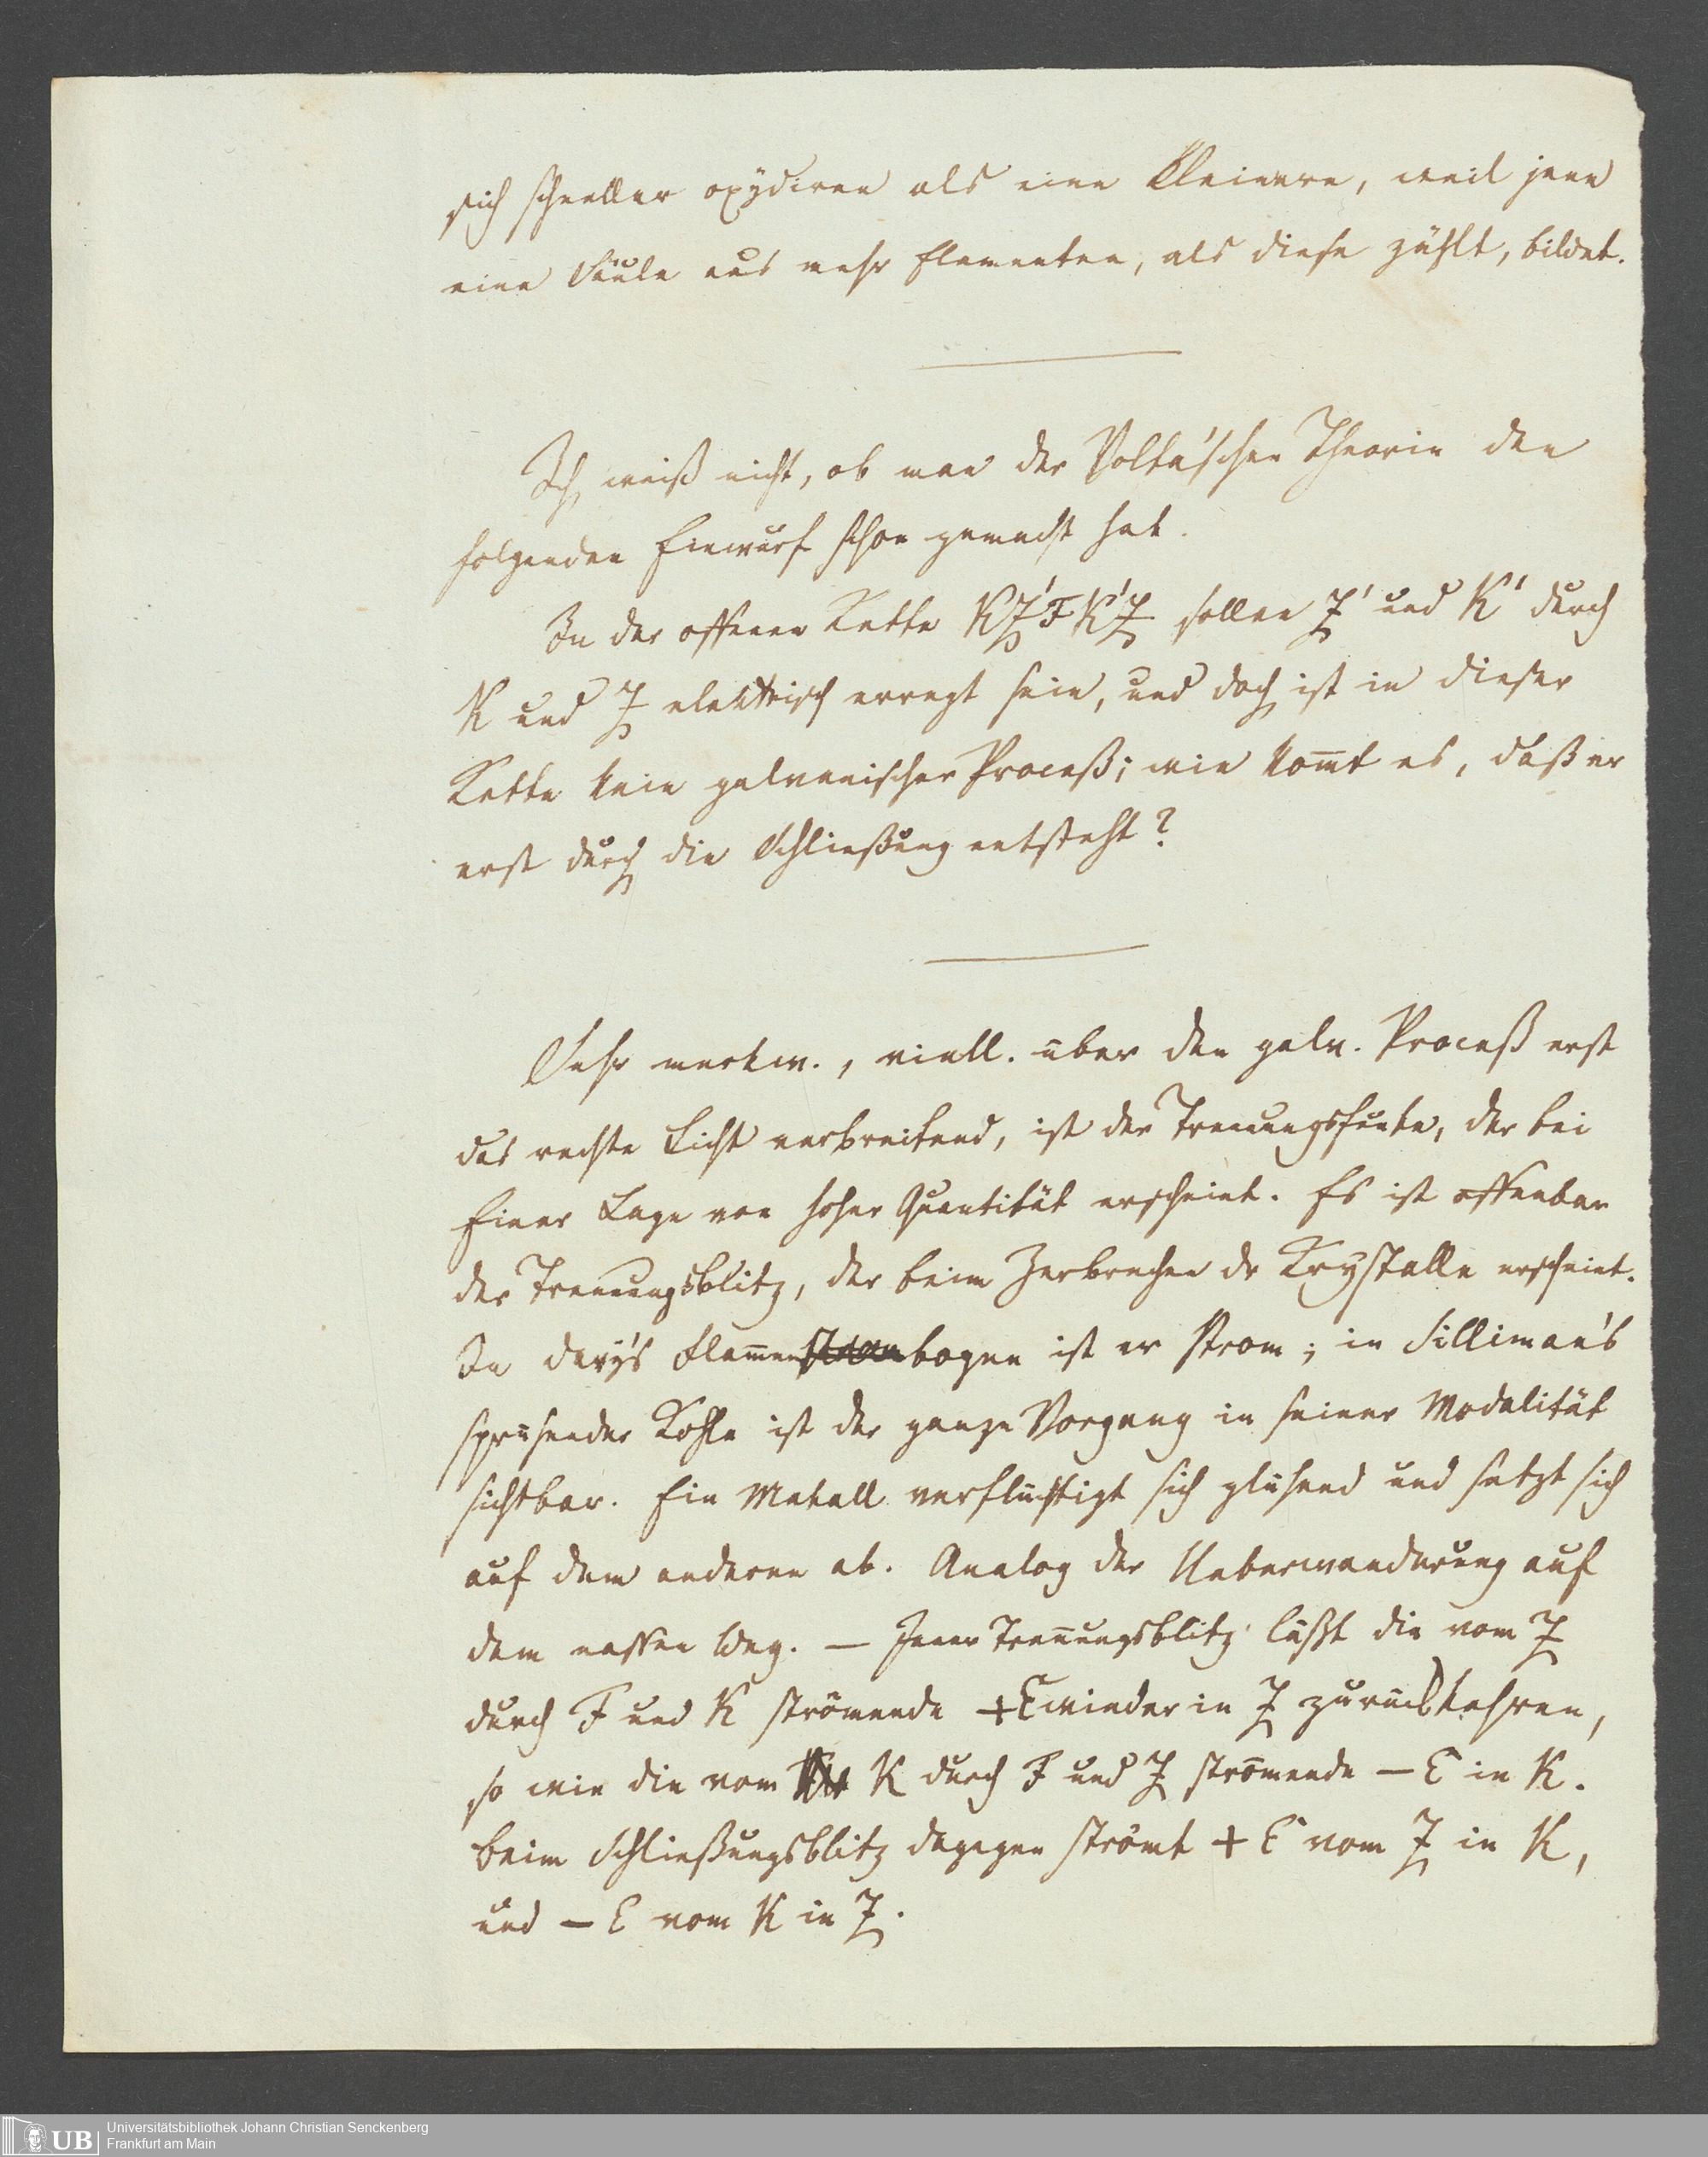 sich schneller oxydiren als eine kleinere, weil jene
eine Säule aus mehr Elementen, als diese zählt, bildet.
Ich weiß nicht, ob man der Volta'schen Theorie den
folgenden Einwurf schon gemacht hat.
In der offenen Kette KZ'FK'Z sollen Z' und K' durch
K und Z elektrisch erregt sein, und doch ist in dieser
Kette kein galvanischer Proceß; wie kom̅t es, daß er
erst durch die Schließung entsteht?
Sehr merkw., viell. über den galv. Proceß erst
das rechte Licht verbreitend, ist der Trennungsfunke, der bei
Einer Lage von hoher Quantität erscheint. Es ist offenbar
der Trennungsblitz, der beim Zerbrechen dr Krystalle erscheint.
In Davy's Flam̅enbogen ist er Strom; in Silliman's
sprühender Kohle ist der ganze Vorgang in seiner Modalität
sichtbar. Ein Metall verflüchtigt sich glühend und setzt sich
auf dem anderen ab. Analog der Ueberwanderung auf
dem nassen Weg. — Jener Tren̅ungsblitz läßt die vom Z
durch F und K strömende +E wieder in Z zurückkehren,
so wie die vom K durch F und Z strömende — E in K.
Beim Schließungsblitz dagegen strömt + E vom Z in K,
und — E vom K in Z.
Universitätsbibliothek Johann Christian Senckenberg
Frankfurt am Main
UB